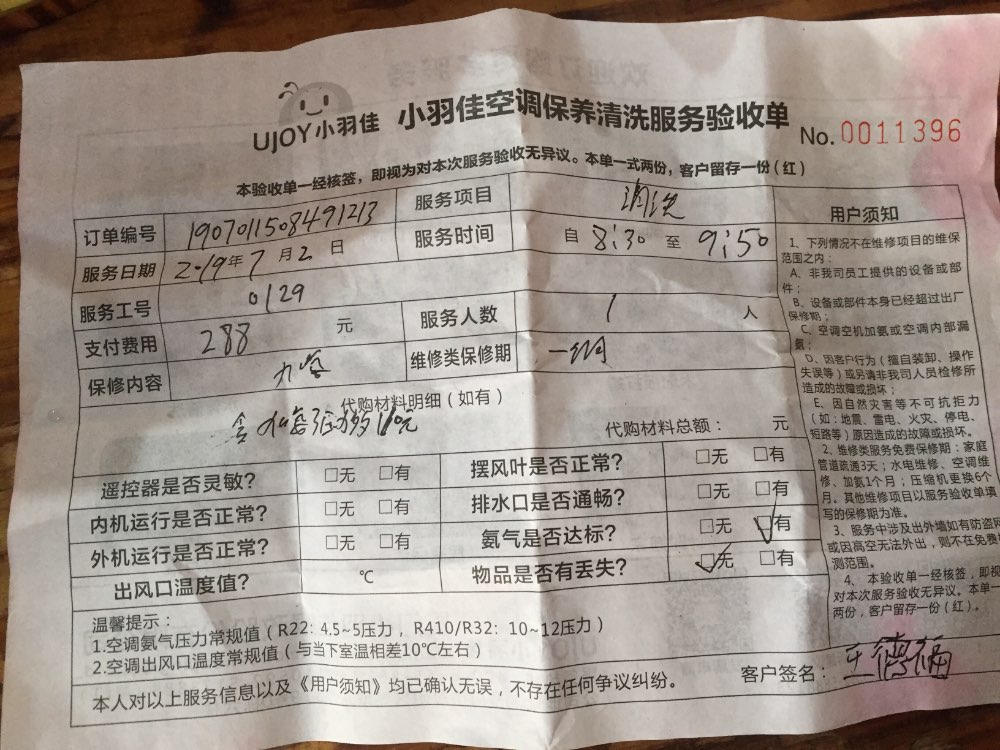 UJOY小羽佳 小羽佳空调保养清洗服务验收单
No.0011396
本验收单一经核签，即视为对本次服务验收无异议。本单一式两份，客户留存一份(红)
订单编号 1907011508491213 服务项目 清洗
服务日期 2019年7月2日 服务时间 自 8:30 至 9:50
服务工号 0129
支付费用 288 元 服务人数 1 人
保修内容 维修类保修期 一个月
代购材料明细（如有）
代购材料总额： 元
遥控器是否灵敏? □无 □有 摆风叶是否正常? □无 □有
内机运行是否正常? □无 □有 排水口是否通畅? □无 □有
外机运行是否正常? □无 □有 氨气是否达标? □无 ☑有
出风口温度值? ℃ 物品是否有丢失? ☑无 □有
温馨提示：
1.空调氨气压力常规值（R22: 4.5~5压力，R410/R32: 10~12压力）
2.空调出风口温度常规值（与当下室温相差10℃左右）
本人对以上服务信息以及《用户须知》均已确认无误，不存在任何争议纠纷。
客户签名： 王德福
用户须知
1、下列情况不在维修项目的维保
范围之内：
A、非我司员工提供的设备或部
件；
B、设备或部件本身已经超过出厂
保修期；
C、空调空机加氨或空调内部漏
氨；
D、因客户行为（擅自装卸、操作
失误等）或另请非我司人员检修所
造成的故障或损坏；
E、因自然灾害等不可抗拒力
（如：地震、雷电、火灾、停电、
短路等）原因造成的故障或损坏。
2、维修类服务免费保修期：家庭
管道疏通3天；水电维修、空调维
修、加氨1个月；压缩机更换6个
月。其他维修项目以服务验收单填
写的保修期为准。
3、服务中涉及出外墙如有防盗网
或因高空无法外出，则不在免费
测范围。
4、本验收单一经核签，即视
对本次服务验收无异议。本单一
两份，客户留存一份（红）。